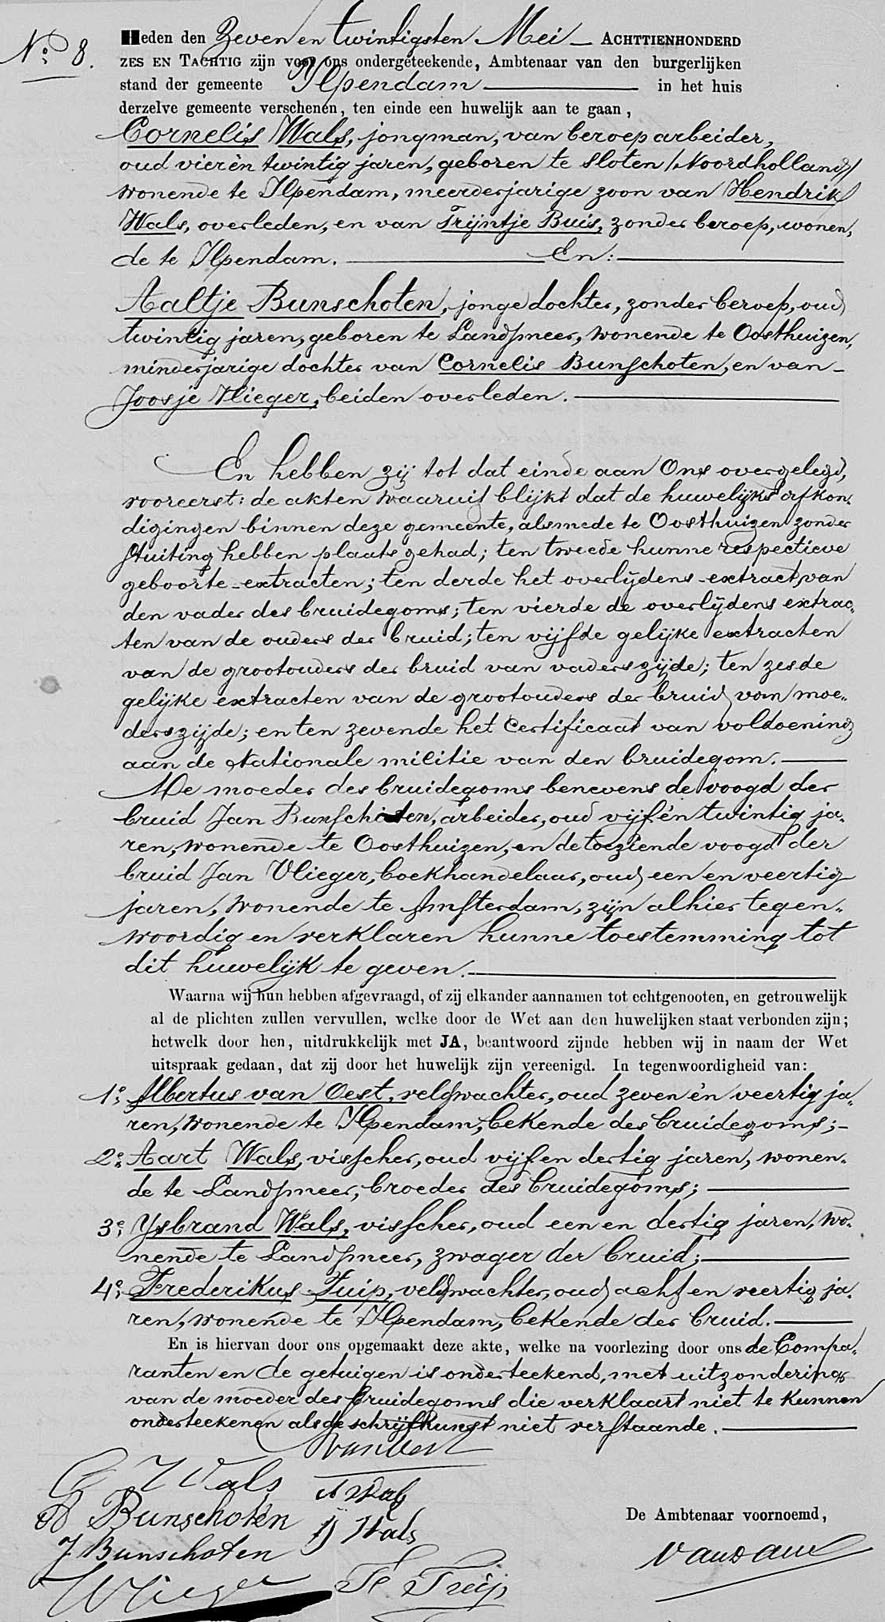 No. 8.
Heden den Zeven en twintigsten Mei ACHTTIENHONDERD
ZES EN TACHTIG zijn voor ons ondergeteekende, Ambtenaar van den burgerlijken
stand der gemeente Ilpendam in het huis
derzelve gemeente verschenen, ten einde een huwelijk aan te gaan,
Cornelis Wals, jongman, van beroep arbeider,
oud vier en twintig jaren, geboren te Sloten /Noordholland/
wonende te Ilpendam, meerderjarige zoon van Hendrik
Wals, overleden, en van Trijntje Buis, zonder beroep, wonen,
de te Ilpendam. En:
Aaltje Bunschoten, jongedochter, zonder beroep, oud
twintig jaren, geboren te Landsmeer, wonende te Oosthuizen,
minderjarige dochter van Cornelis Bunschoten, en van
Joosje Vlieger, beiden overleden.
En hebben zij tot dat einde aan Ons overgelegd,
vooreerst: de akten waaruit blijkt dat de huwelijks afkon,
digingen binnen deze gemeente, alsmede te Oosthuizen zonder
stuiting hebben plaats gehad; ten tweede hunne respectieve
geboorte-extracten; ten derde het overlijdens-extract van
den vader des bruidegoms; ten vierde de overlijdens extrac,
ten van de ouders der bruid; ten vijfde gelijke extracten
van de grootouders der bruid van vaderszijde; ten zesde
gelijke extracten van de grootouders der bruid van moe,
derszijde; en ten zevende het Certificaat van voldoening
aan de Nationale militie van den bruidegom.
De moeder des bruidegoms benevens de voogd der
bruid Jan Bunschoten, arbeider, oud vijf en twintig ja,
ren, wonende te Oosthuizen, en de toeziende voogd der
bruid Jan Vlieger, boekhandelaar, oud een en veertig
jaren, wonende te Amsterdam, zijn alhier tegen,
woordig en verklaren hunne toestemming tot
dit huwelijk te geven.
Waarna wij hun hebben afgevraagd, of zij elkander aannamen tot echtgenooten, en getrouwelijk
al de plichten zullen vervullen, welke door de Wet aan den huwelijken staat verbonden zijn;
hetwelk door hen, uitdrukkelijk met JA, beantwoord zijnde hebben wij in naam der Wet
uitspraak gedaan, dat zij door het huwelijk zijn vereenigd. In tegenwoordigheid van:
1e. Albertus van Oest, veldwachter, oud zeven en veertig ja,
ren, wonende te Ilpendam, bekende des bruidegoms;
2e. Aart Wals, visscher, oud vijf en dertig jaren, wonen,
de te Landsmeer, broeder des bruidegoms;
3e. Ysbrand Wals, visscher, oud een en dertig jaren, wo,
nende te Landsmeer, zwager der bruid;
4e. Frederikus Tuip, veldwachter, oud acht en veertig ja,
ren, wonende te Ilpendam, bekende der bruid.
En is hiervan door ons opgemaakt deze akte, welke na voorlezing door ons de Compa,
ranten en de getuigen is onderteekend, met uitzondering
van de moeder des bruidegoms die verklaart niet te kunnen
onderteekenen als de schrijfkunst niet verstaande.
C Wals
A Wals
A Bunschoten
IJ Wals
J Bunschoten
De Ambtenaar voornoemd,
Vlieger